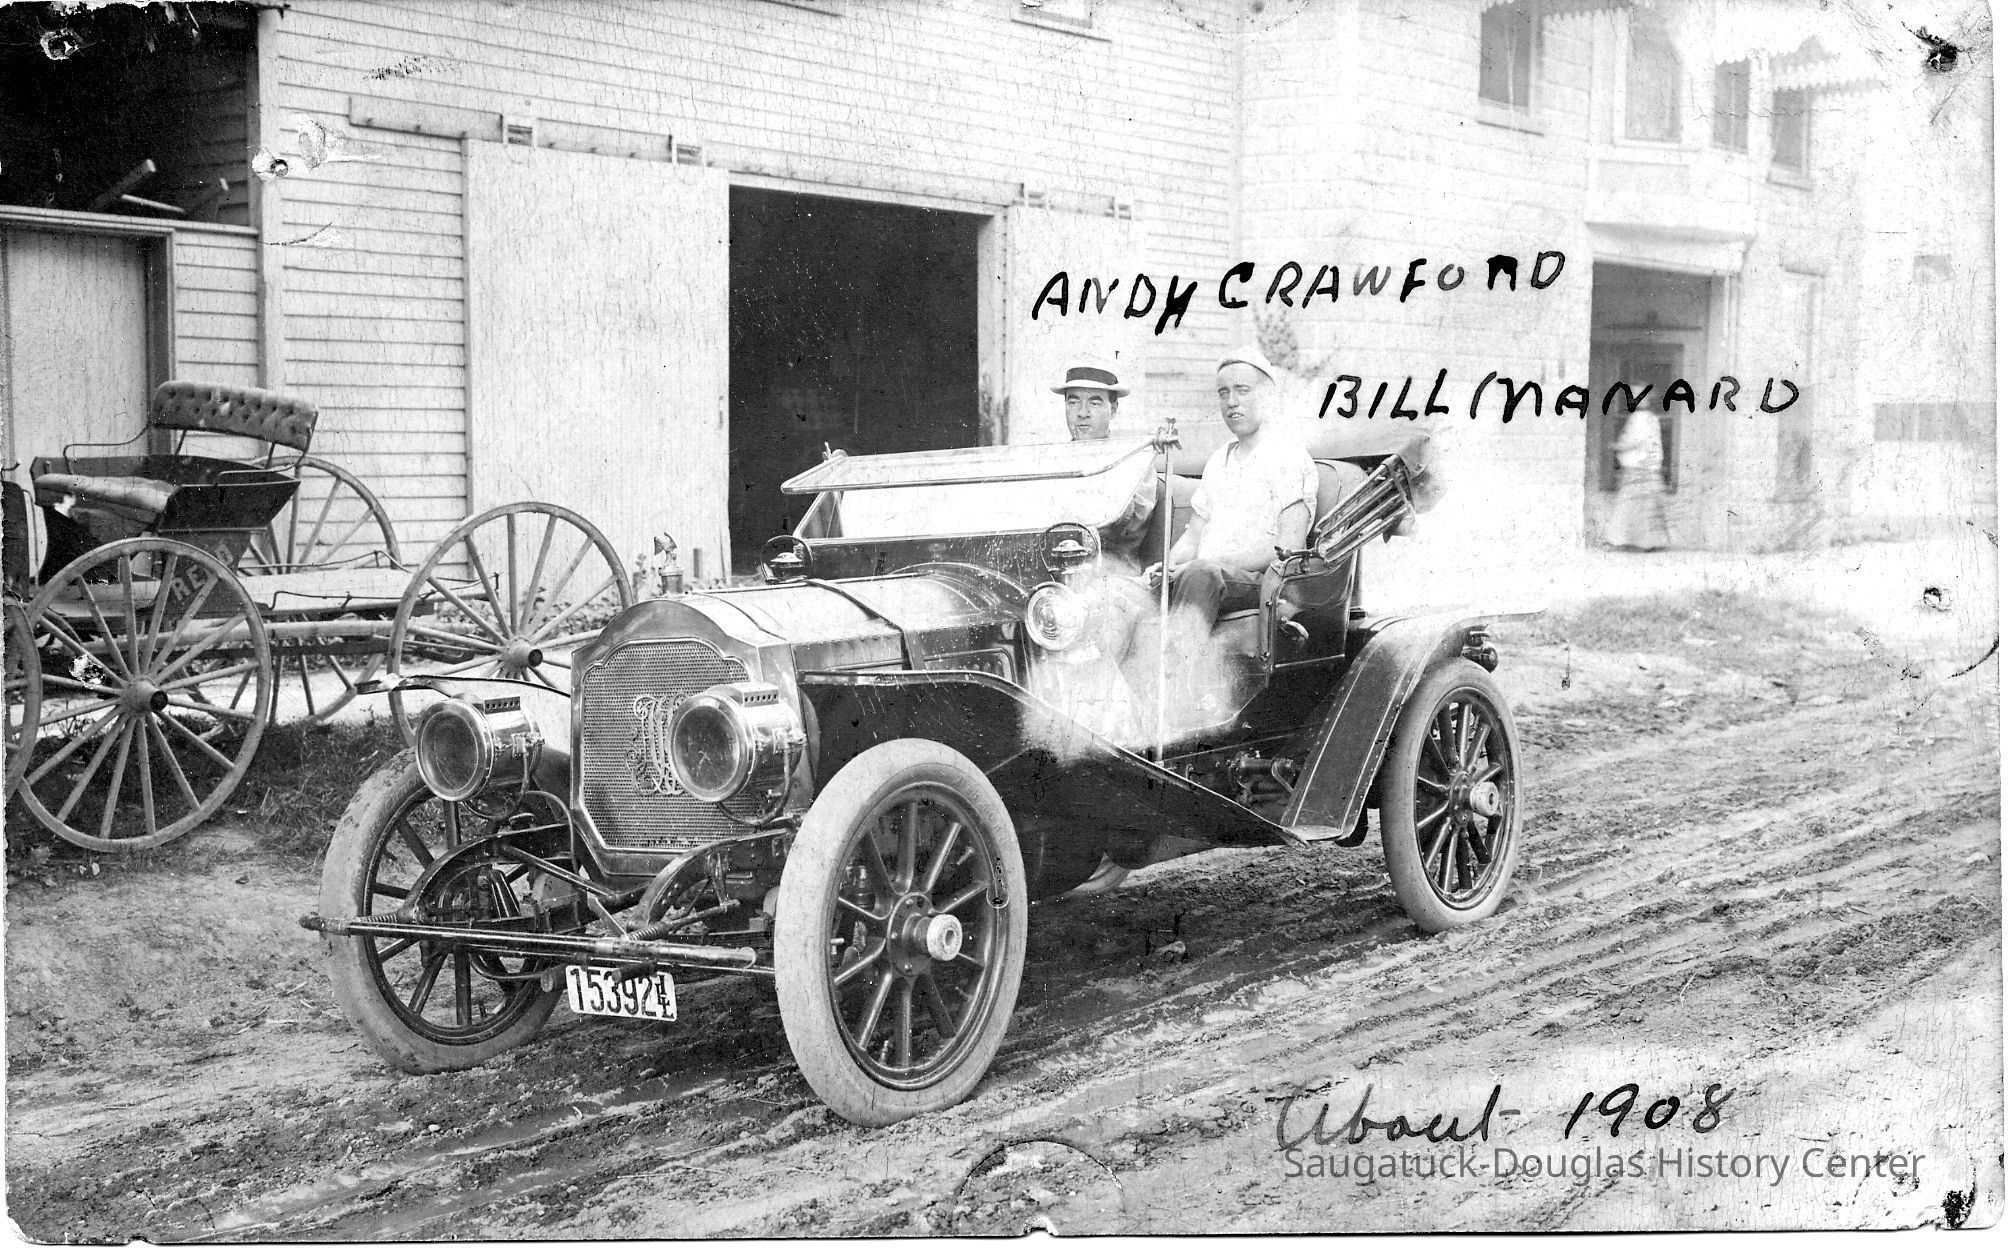 ANDY CRAWFORD
BILL MANARD
15392 ILL
About 1908
Saugatuck-Douglas History Center